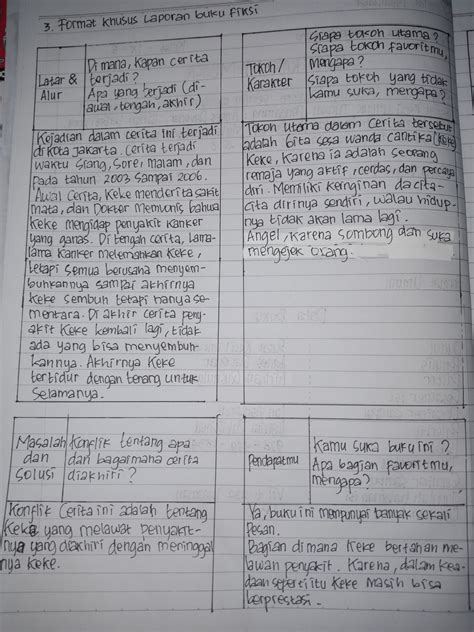 3. Format khusus Laporan buku fiksi
Latar &
Alur
Di mana, Kapan cerita
terjadi?
Apa yang terjadi (di-
awal, tengah, akhir)
Kejadian dalam cerita ini terjadi
di kota Jakarta. Cerita terjadi
waktu Siang, Sore, Malam, dan
Pada tahun 2003 Sampai 2006.
Awal Cerita, Keke menderita sakit
mata, dan Dokter memvonis bahwa
Keke mengidap penyakit kanker
yang ganas. Di tengah cerita, Lama-
lama Kanker melemahkan Keke,
tetapi semua berusaha menyem-
buhkannya sampai akhirnya
Keke sembuh tetapi hanya se-
mentara. Di akhir cerita peny-
akit Keke kembali lagi, tidak
ada yang bisa menyembuh-
kannya. Akhirnya Keke
tertidur dengan tenang untuk
Selamanya.
Tokoh/
Karakter
Siapa tokoh utama?
Siapa tokoh favoritmu,
Mengapa?
Siapa tokoh yang tidak
kamu suka, mengapa?
Tokoh utama dalam cerita tersebut
adalah Gita Sesa Wanda Cantika (Keke)
Keke, Karena ia adalah seorang
remaja yang aktif, cerdas, dan percaya
diri. Memiliki keinginan dacita-
cita dirinya sendiri, walau hidup-
nya tidak akan lama lagi.
Angel, Karena sombong dan suka
mengejek orang.
Masalah
dan
Solusi
Konflik tentang apa
dan bagaimana cerita
diakhiri?
Konflik Cerita ini adalah tentang
Keke yang melawat penyakit-
nya yang diakhiri dengan meninggal
nya Keke.
Pendapatmu
Kamu suka buku ini?
Apa bagian favoritmu,
mengapa?
Ya, buku ini mempunyai banyak sekali
Pesan.
Bagian di mana Keke bertahan me-
lawan penyakit. Karena, dalam kea-
daan seperti itu Keke Masih bisa
berprestasi.